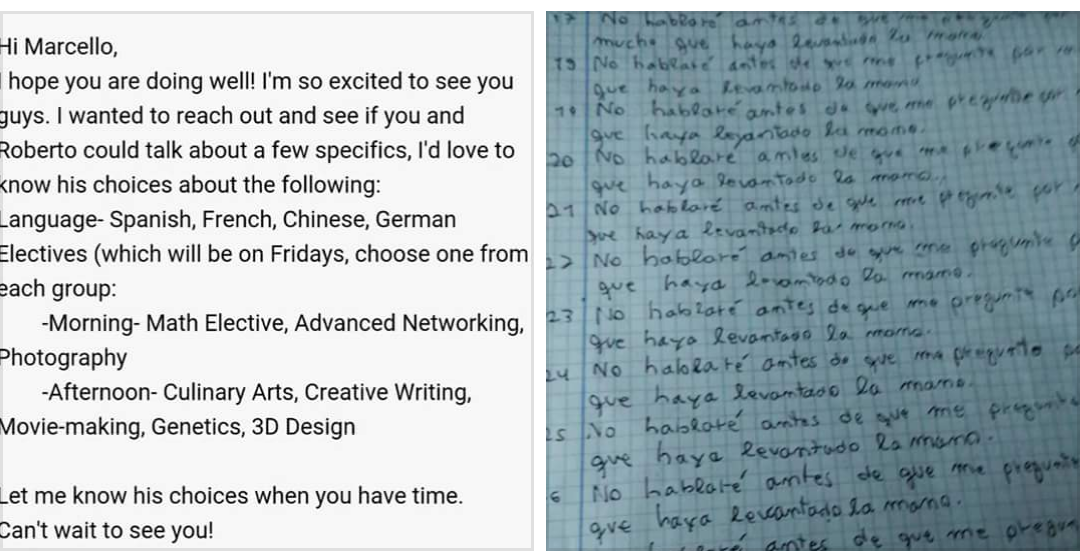 Hi Marcello,
I hope you are doing well! I'm so excited to see you
guys. I wanted to reach out and see if you and
Roberto could talk about a few specifics, I'd love to
know his choices about the following:
Language- Spanish, French, Chinese, German
Electives (which will be on Fridays, choose one from
each group:
-Morning- Math Elective, Advanced Networking,
Photography
-Afternoon- Culinary Arts, Creative Writing,
Movie-making, Genetics, 3D Design
Let me know his choices when you have time.
Can't wait to see you!
No hablaré antes de que me
que haya levantado la mano
19 No hablaré antes de que me pregunte por
que haya levantado la mano
No hablaré antes de que me pregunte
que haya levantado la mano.
20 No hablaré antes de que me pregunte
que haya levantado la mano.
21 No hablaré antes de que me pregunte por
que haya levantado la mano.
22 No hablaré antes de que me pregunte
que haya levantado la mano.
23 No hablaré antes de que me pregunte
que haya levantado la mano.
24 No hablaré antes de que me pregunte
que haya levantado la mano.
25 No hablaré antes de que me pregunte
que haya levantado la mano.
6 No hablaré antes de que me pregunte
que haya levantado la mano.
antes de que me